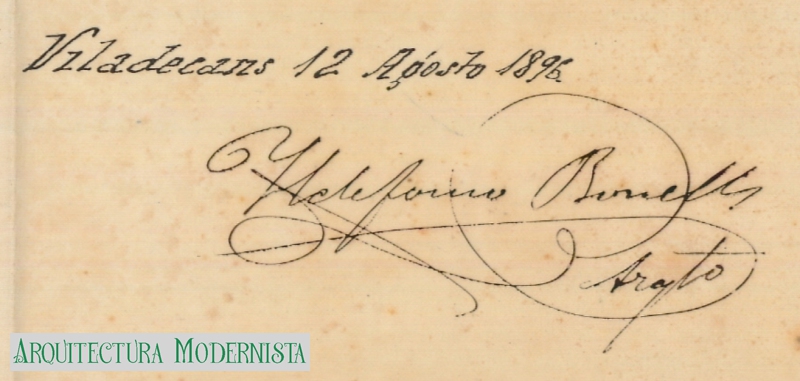 Viladecans 12 Agosto 1896.
Ildefonso Bonells
Arqto
ARQUITECTURA MODERNISTA